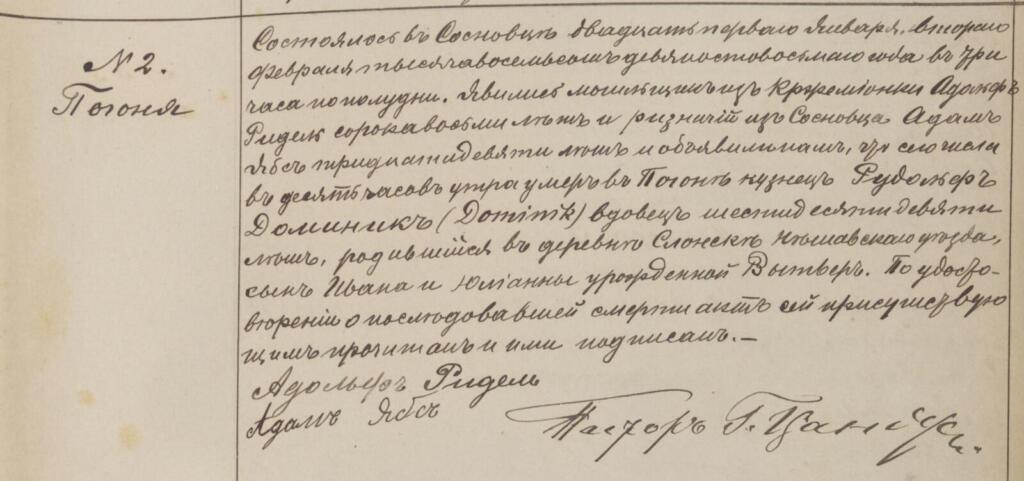 N 2.
Погоня
Состоялось въ Сосновцѣ двадцать перваго Января, втораго
февраля тысяча восемьсотъ девяносто восьмаго года въ три
часа по полудни. Явились могильщикъ изъ Кржеміонки Адольфъ
Ридель сорока восьми лѣтъ и ризничій изъ Сосновца Адамъ
Ябсъ тридцати девяти лѣтъ и объявили намъ, что сего числа
въ десять часовъ утра умеръ въ Погонѣ кузнецъ Рудольфъ
Доминикъ (Dominik) вдовецъ шестидесяти девяти
лѣтъ, родившійся въ деревнѣ Слонскѣ Нѣшавскаго уѣзда,
сынъ Ивана и Юліанны урожденной Вытверъ. По удосто-
вѣреніи о послѣдовавшей смерти актъ сей присутствую
щимъ прочитанъ и ими подписанъ. —
Адольфъ Ридель
Адамъ Ябсъ
Пасторъ Г.